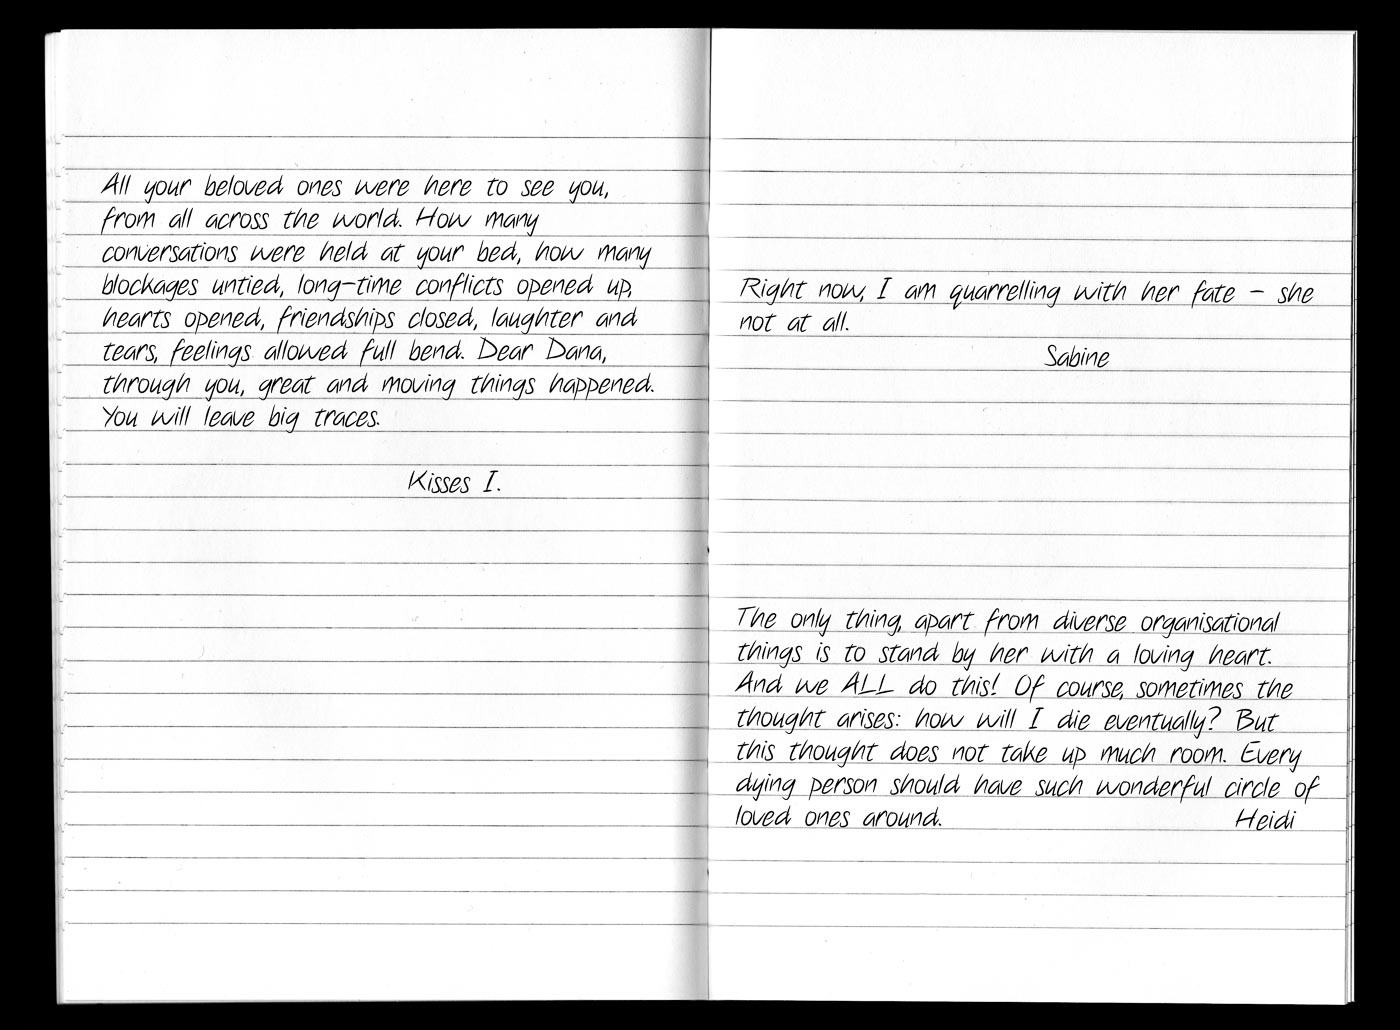 All your beloved ones were here to see you,
from all across the world. How many
conversations were held at your bed, how many
blockages untied, long-time conflicts opened up,
hearts opened, friendships closed, laughter and
tears, feelings allowed full bend. Dear Dana,
through you, great and moving things happened.
You will leave big traces.
Kisses I.
Right now, I am quarrelling with her fate - she
not at all.
Sabine
The only thing, apart from diverse organisational
things is to stand by her with a loving heart.
And we ALL do this! Of course, sometimes the
thought arises: how will I die eventually? But
this thought does not take up much room. Every
dying person should have such wonderful circle of
loved ones around. Heidi